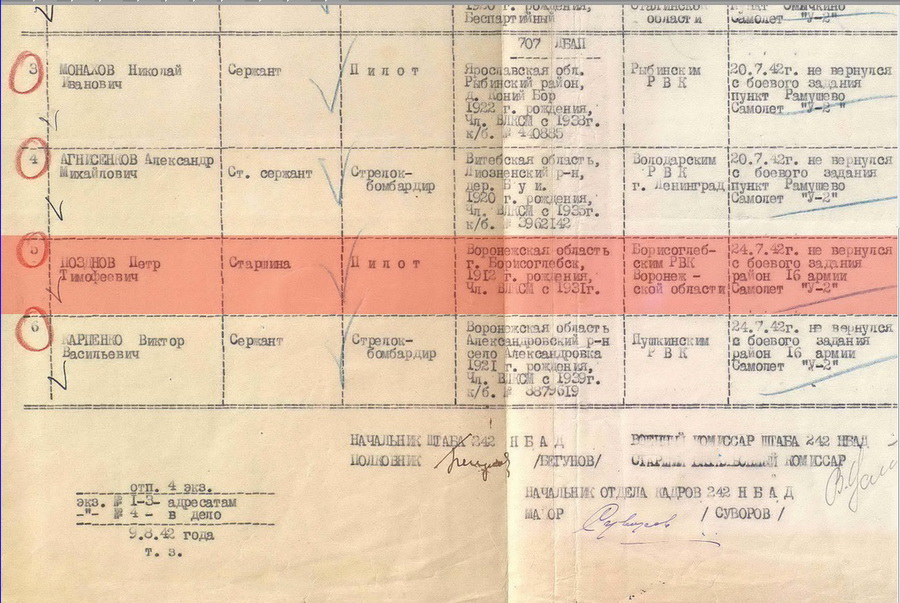 1920 г. рождения,
Беспартийный
Сталинской
области
пункт
Самолет "У-2"
707 ЛБАП
3
МОНАХОВ Николай
Иванович
Сержант
Пилот
Ярославская обл.
Рыбинский район,
д. Коний Бор
1922 г. рождения,
Чл. ВЛКСМ с 1938г.
к/б. № 440885
Рыбинским
РВК
20.7.42г. не вернулся
с боевого задания
пункт Рамушево
Самолет "У-2"
4
АГНИСЕНКОВ Александр
Михайлович
Ст. сержант
Стрелок-
бомбардир
Витебская область,
Лиозненский р-н,
дер. Буи.
1920 г. рождения,
Чл. ВЛКСМ с 1935г.
№ 3962142
Володарским
РВК
г. Ленинград
20.7.42г. не вернулся
с боевого задания
пункт Рамушево
Самолет "У-2"
5
ПОЗДНОВ Петр
Тимофеевич
Старшина
Пилот
Воронежская область
г. Борисоглебск,
1912 г. рождения,
Чл. ВЛКСМ с 1931г.
Борисоглеб-
ским РВК
Воронеж -
ской области
24.7.42г. не вернулся
с боевого задания
район 16 армии
Самолет "У-2"
6
КАРПЕНКО Виктор
Васильевич
Сержант
Стрелок-
бомбардир
Воронежская область
Александровский р-н
село Александровка
1921 г. рождения,
Чл. ВЛКСМ с 1939г.
к/б. № 3879619
Пушкинским
РВК
24.7.42г. не вернулся
с боевого задания
район 16 армии
Самолет "У-2"
НАЧАЛЬНИК ШТАБА 242 НБАД
ПОЛКОВНИК /БЕГУНОВ/
ВОЕННЫЙ КОМИССАР ШТАБА 242 НБАД
СТАРШИЙ БАТАЛЬОННЫЙ КОМИССАР
НАЧАЛЬНИК ОТДЕЛА КАДРОВ 242 НБАД
МАЙОР Суворов /СУВОРОВ/
отп. 4 экз.
экз. № 1-3- адресатам
-"- № 4 - в дело
9.8.42 года
т. з.